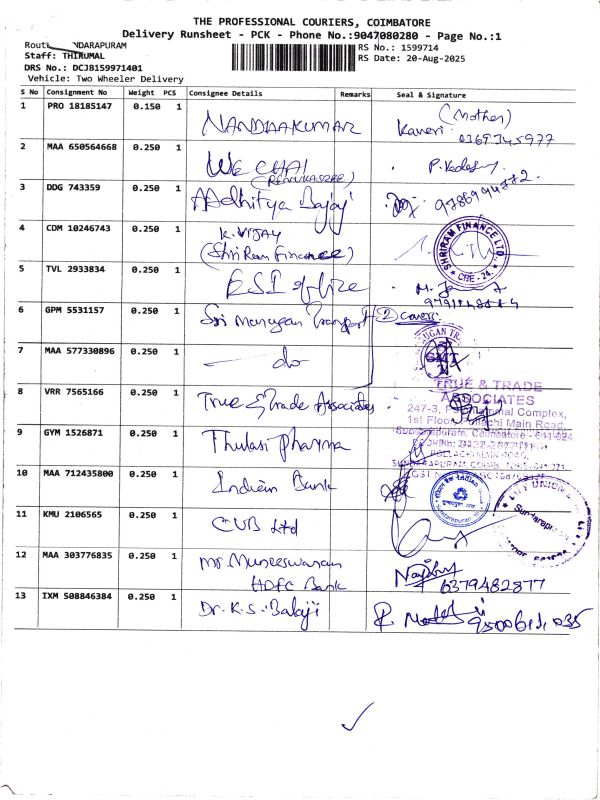 THE PROFESSIONAL COURIERS, COIMBATORE
Delivery Runsheet - PCK - Phone No.:9047080280 - Page No.:1
NDARAPURAM
RS No.: 1599714
Staff: THIRUMAL
RS Date: 20-Aug-2025
DRS No.: DCJB159971401
Vehicle: Two Wheeler Delivery
S No Consignment No Weight PCS Consignee Details Remarks Seal & Signature
1 PRO 18185147 0.150 1 NANDHAKUMAR Kaveri (Mother)
2 MAA 650564668 0.250 1 WE CHAI
3 DDG 743359 0.250 1 AAdhitya Bajaj
4 CDM 10246743 0.250 1 K. VIJAY
(Shri Ram Finance)
SHRIRAM FINANCE LTD. CBE - 24.
5 TVL 2933834 0.250 1 ESI office
6 GPM 5531157 0.250 1 Sri Murugan Transport 2 covers
7 MAA 577330896 0.250 1 do
8 VRR 7565166 0.250 1 True & Trade Associates
TRUE & TRADE
ASSOCIATES
1st Floor, Pollachi Main Road,
Sundarapuram, Coimbatore - 641 024
9 GYM 1526871 0.250 1 Thulasi Pharma
POLLACHI MAIN ROAD,
10 MAA 712435800 0.250 1 Indian Bank
11 KMU 2106565 0.250 1 CUB Ltd
12 MAA 303776835 0.250 1 Mr. Muneeswaran
HDFC Bank
6379482877
13 IXM 508846384 0.250 1 Dr. K.S. Balaji